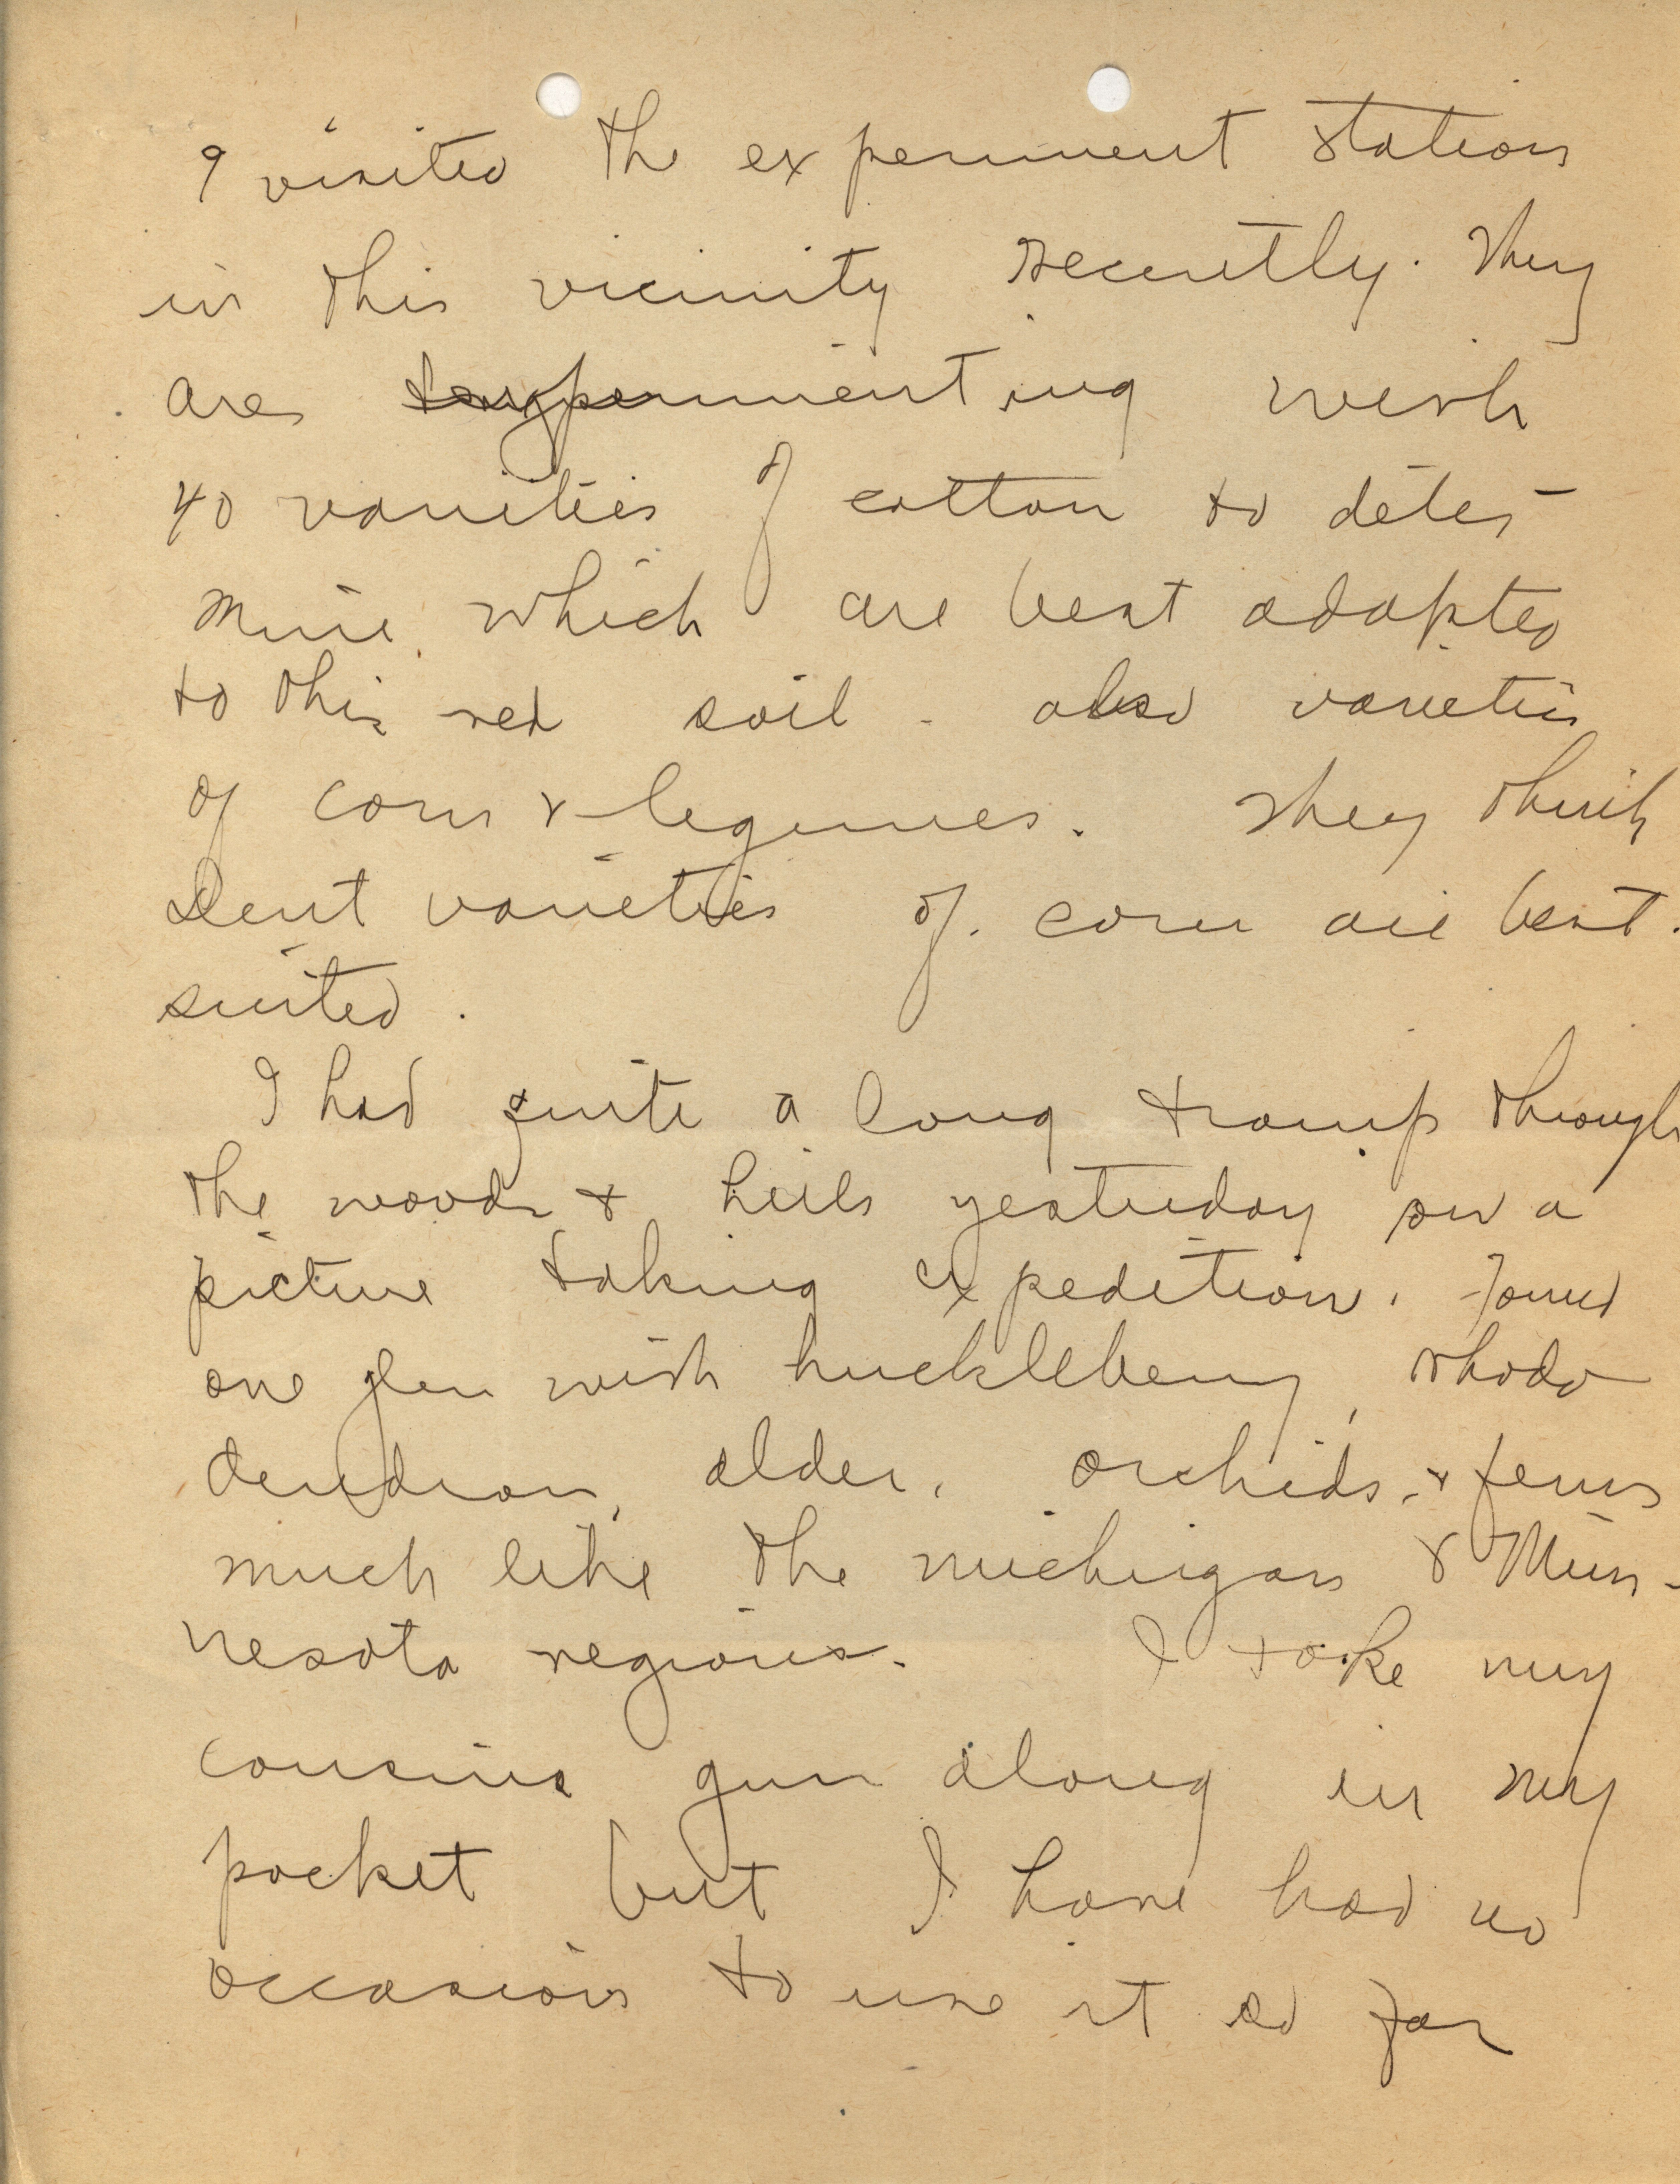 I visited the experiment station
in this vicinity recently. They
are experimenting with
40 varieties of cotton to deter-
mine which are best adapted
to this red soil - also varieties
of corn & legumes. They think
Dent varieties of corn are best
suited.
I had quite a long tramp through
the woods & hills yesterday on a
picture taking expedition. Found
one glen with huckleberry, rhodo-
dendron, alder, orchids, & ferns
much like the Michigan & Min-
nesota regions. I take my
cousins gun along in my
pocket but I have had no
occasion to use it so far